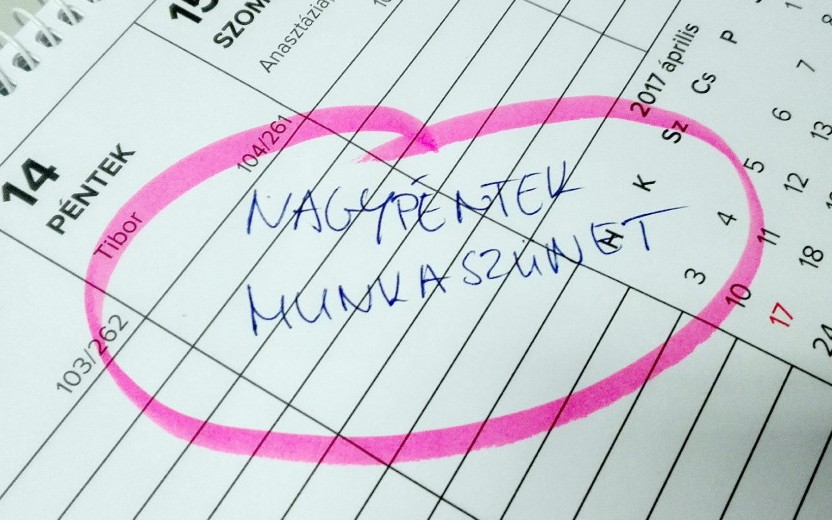 15
14
PÉNTEK
Tibor
103/262
104/261
NAGYPÉNTEK
MUNKASZÜNET
2017 április
H K Sz Cs P
3 4 5 6 7
10 11 12 13
17 18
24